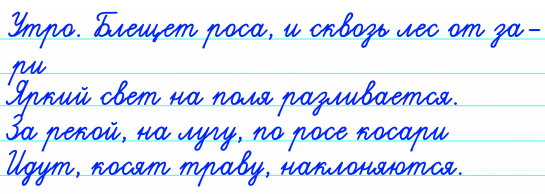 Утро. Блещет роса, и сквозь лес от за-
ри
Яркий свет на поля разливается.
За рекой, на лугу, по росе косари
Идут, косят траву, наклоняются.